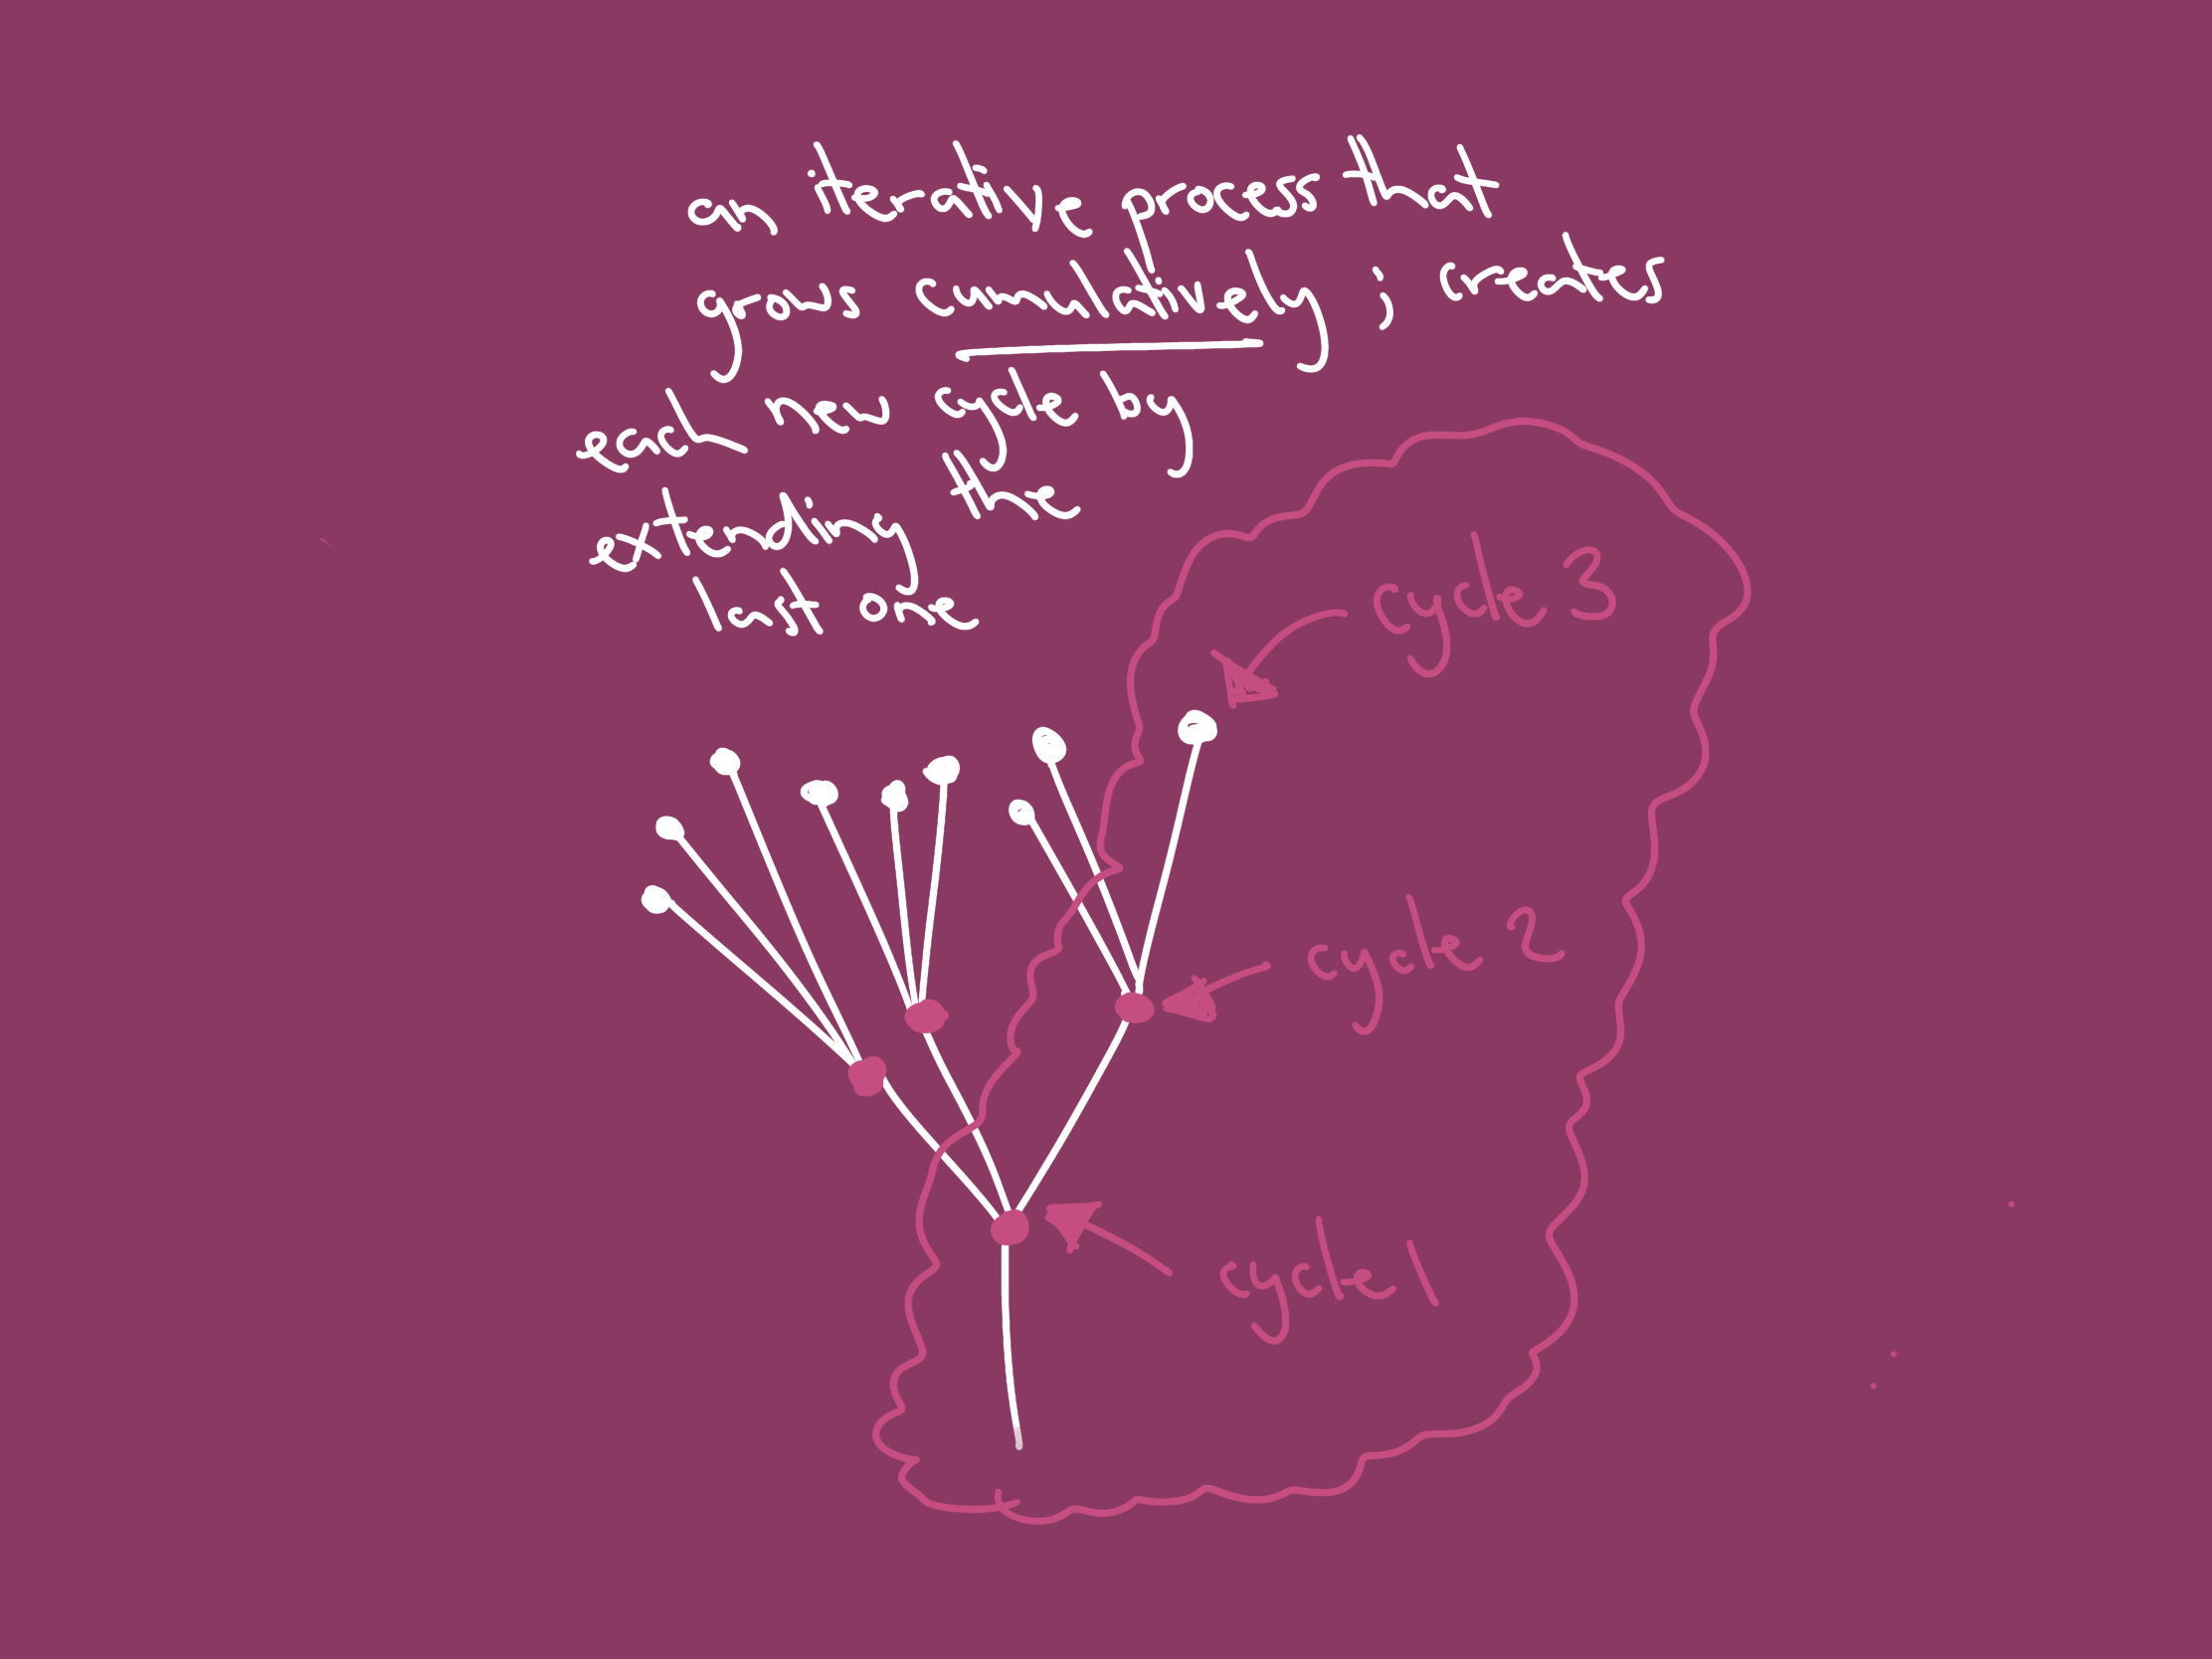 an iterative process that
grows cumulatively; creates
each new cycle by
extending the
last one
cycle 3
cycle 2
cycle 1